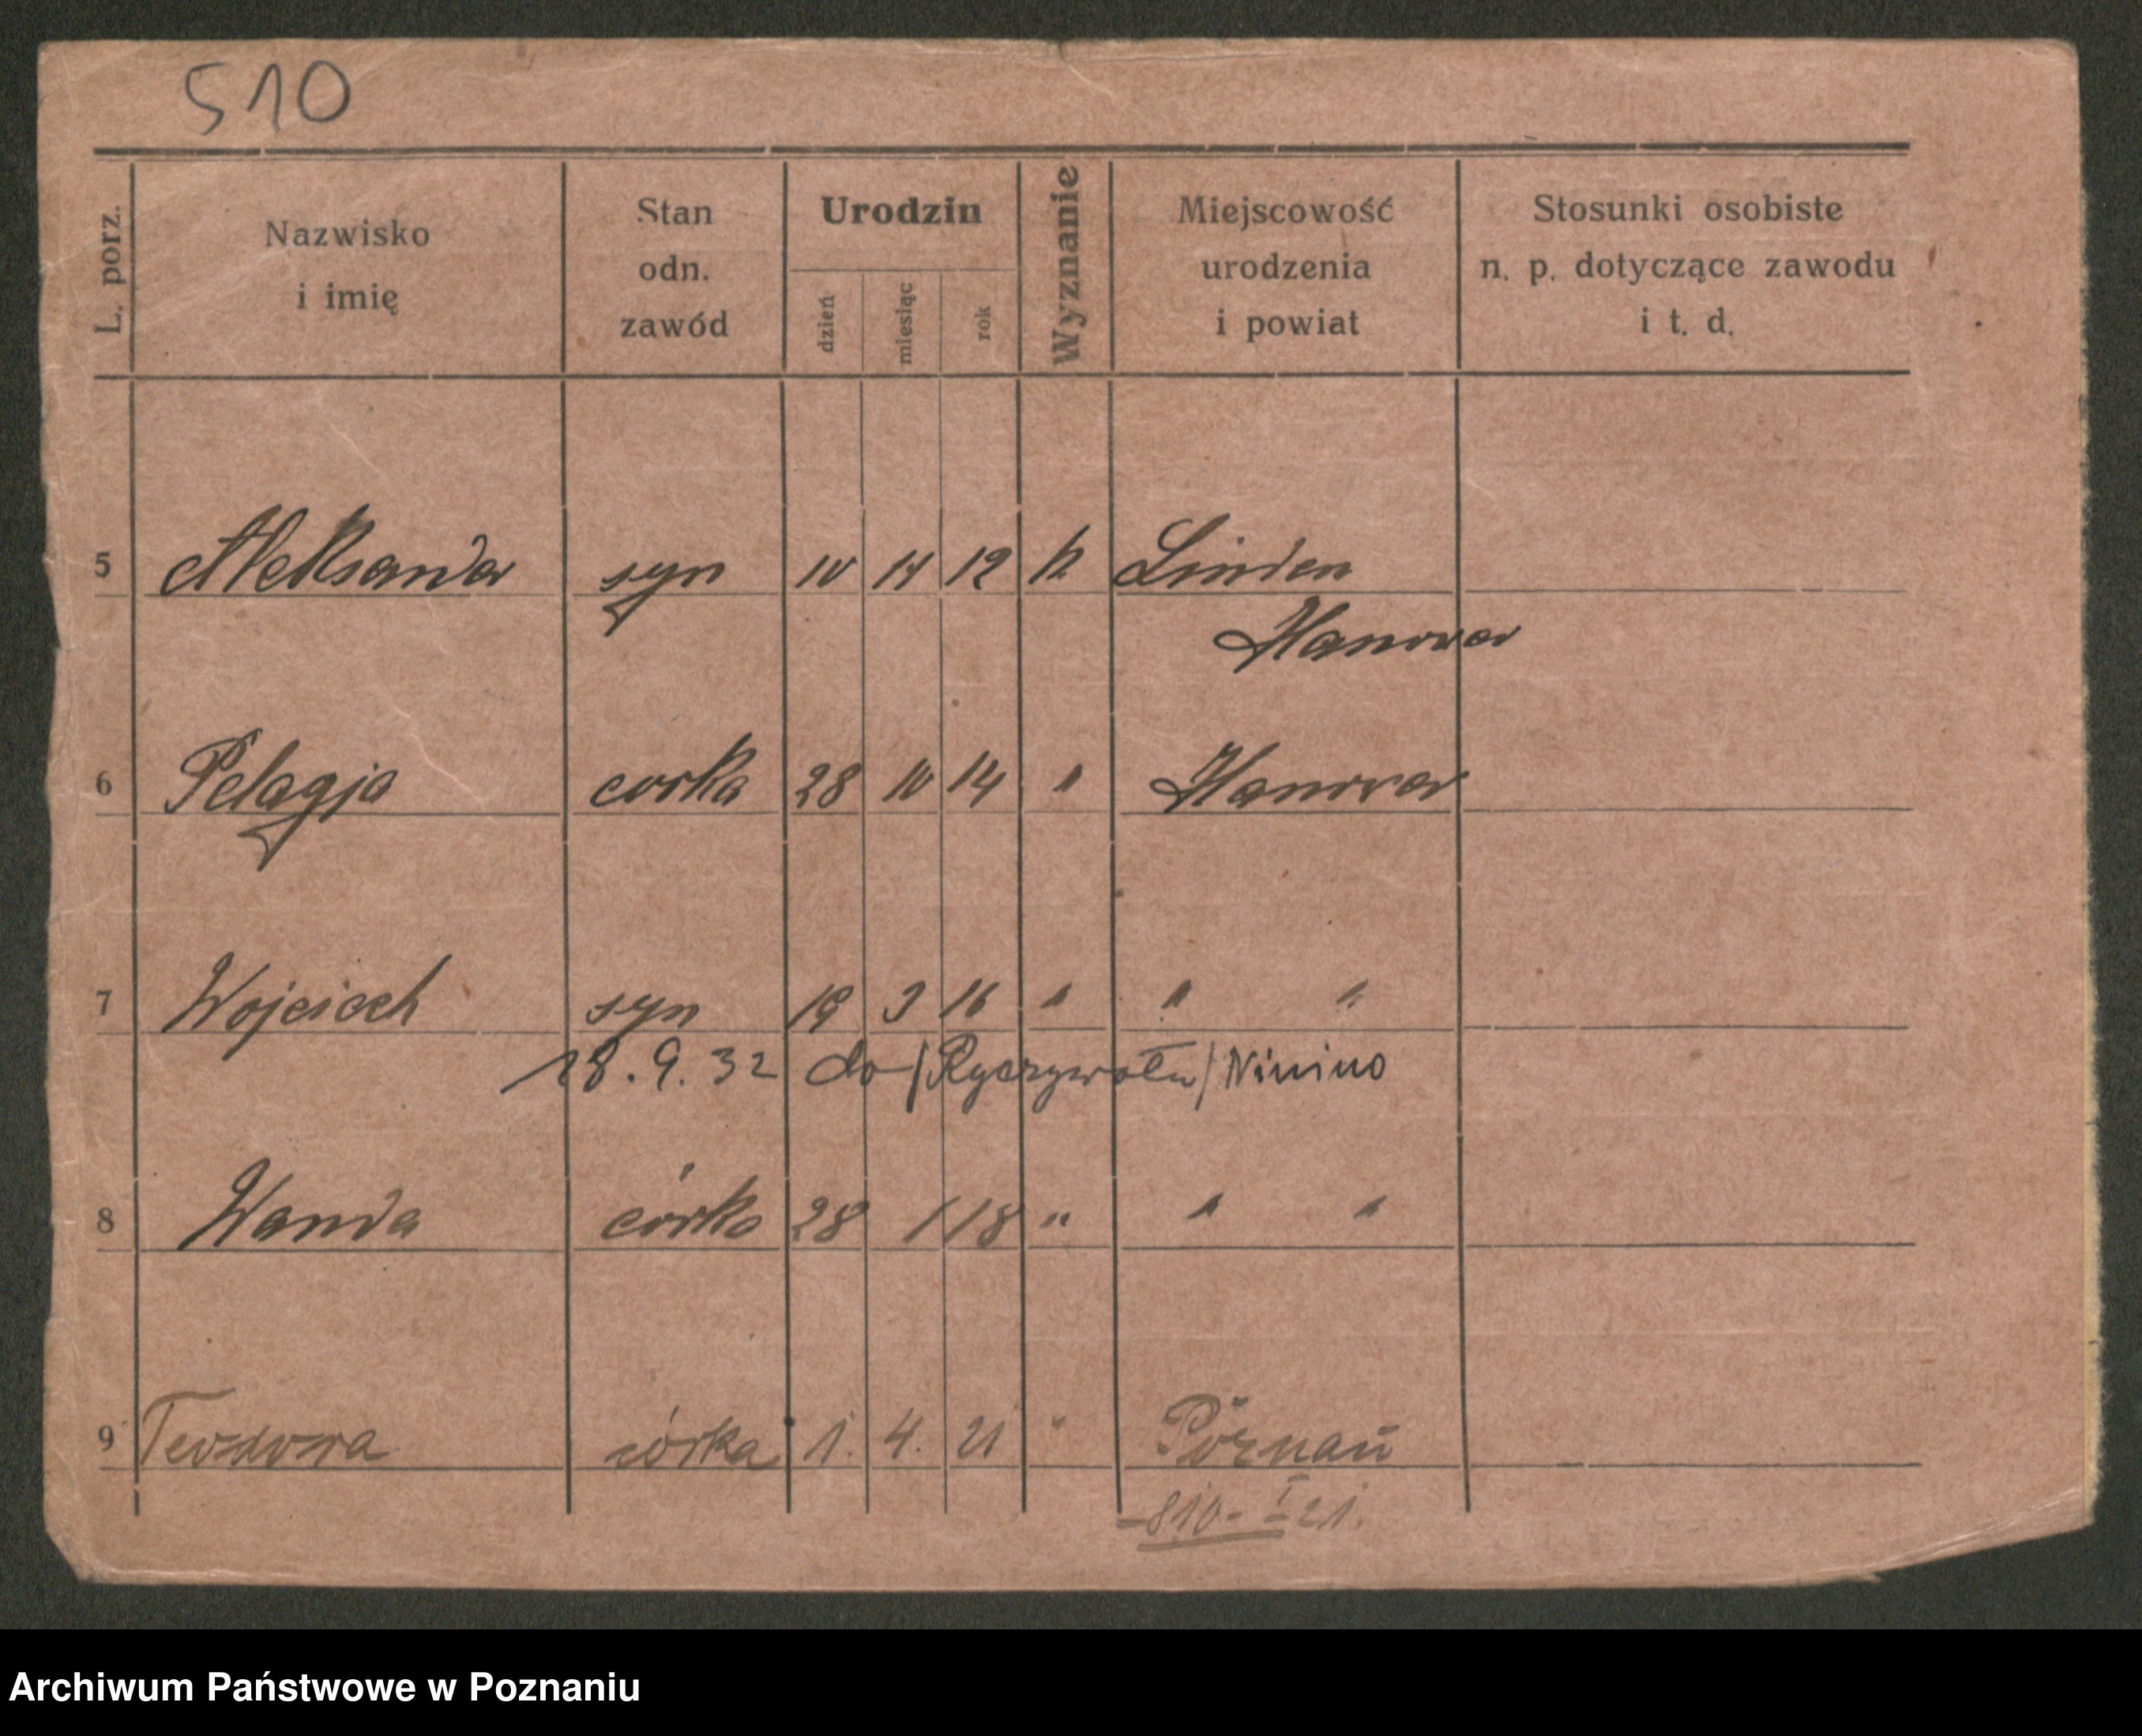 510
L. porz.
Nazwisko
i imię
Stan
odn.
zawód
Urodzin
dzień
miesiąc
rok
Wyznanie
Miejscowość
urodzenia
i powiat
Stosunki osobiste
n. p. dotyczące zawodu
i t. d.
5 Aleksander syn 10 12 k Linden
Hanower
6 Pelagja corka 28 10 14 " Hanower
7 Wojciech syn 19 3 16 " " "
18.9.32 do /Ryczywołu/ Ninino
8 Wanda córka 28 1 18 " " "
9 Teodora córka 1. 4. 21 " Poznań
-810- I 21.
Archiwum Państwowe w Poznaniu